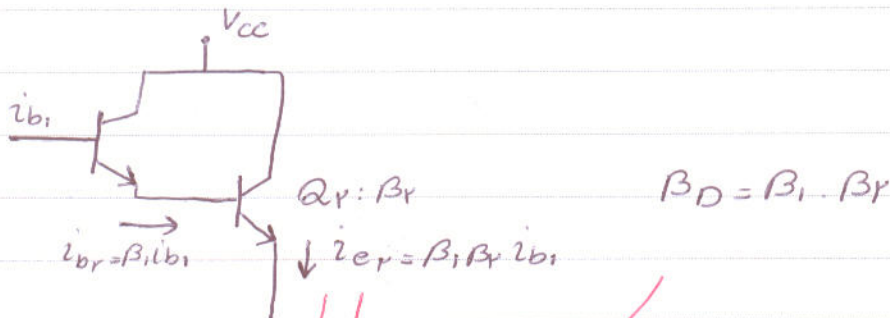 Vcc
i_b۱
Q۲: β۲
β_D = β۱ . β۲
i_b۲ = β۱ i_b۱
↓ i_e۲ = β۱ β۲ i_b۱